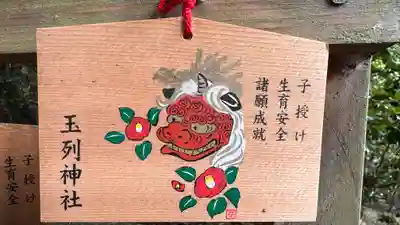 子授け
生育安全
諸願成就
玉列神社
子授け
生育安全